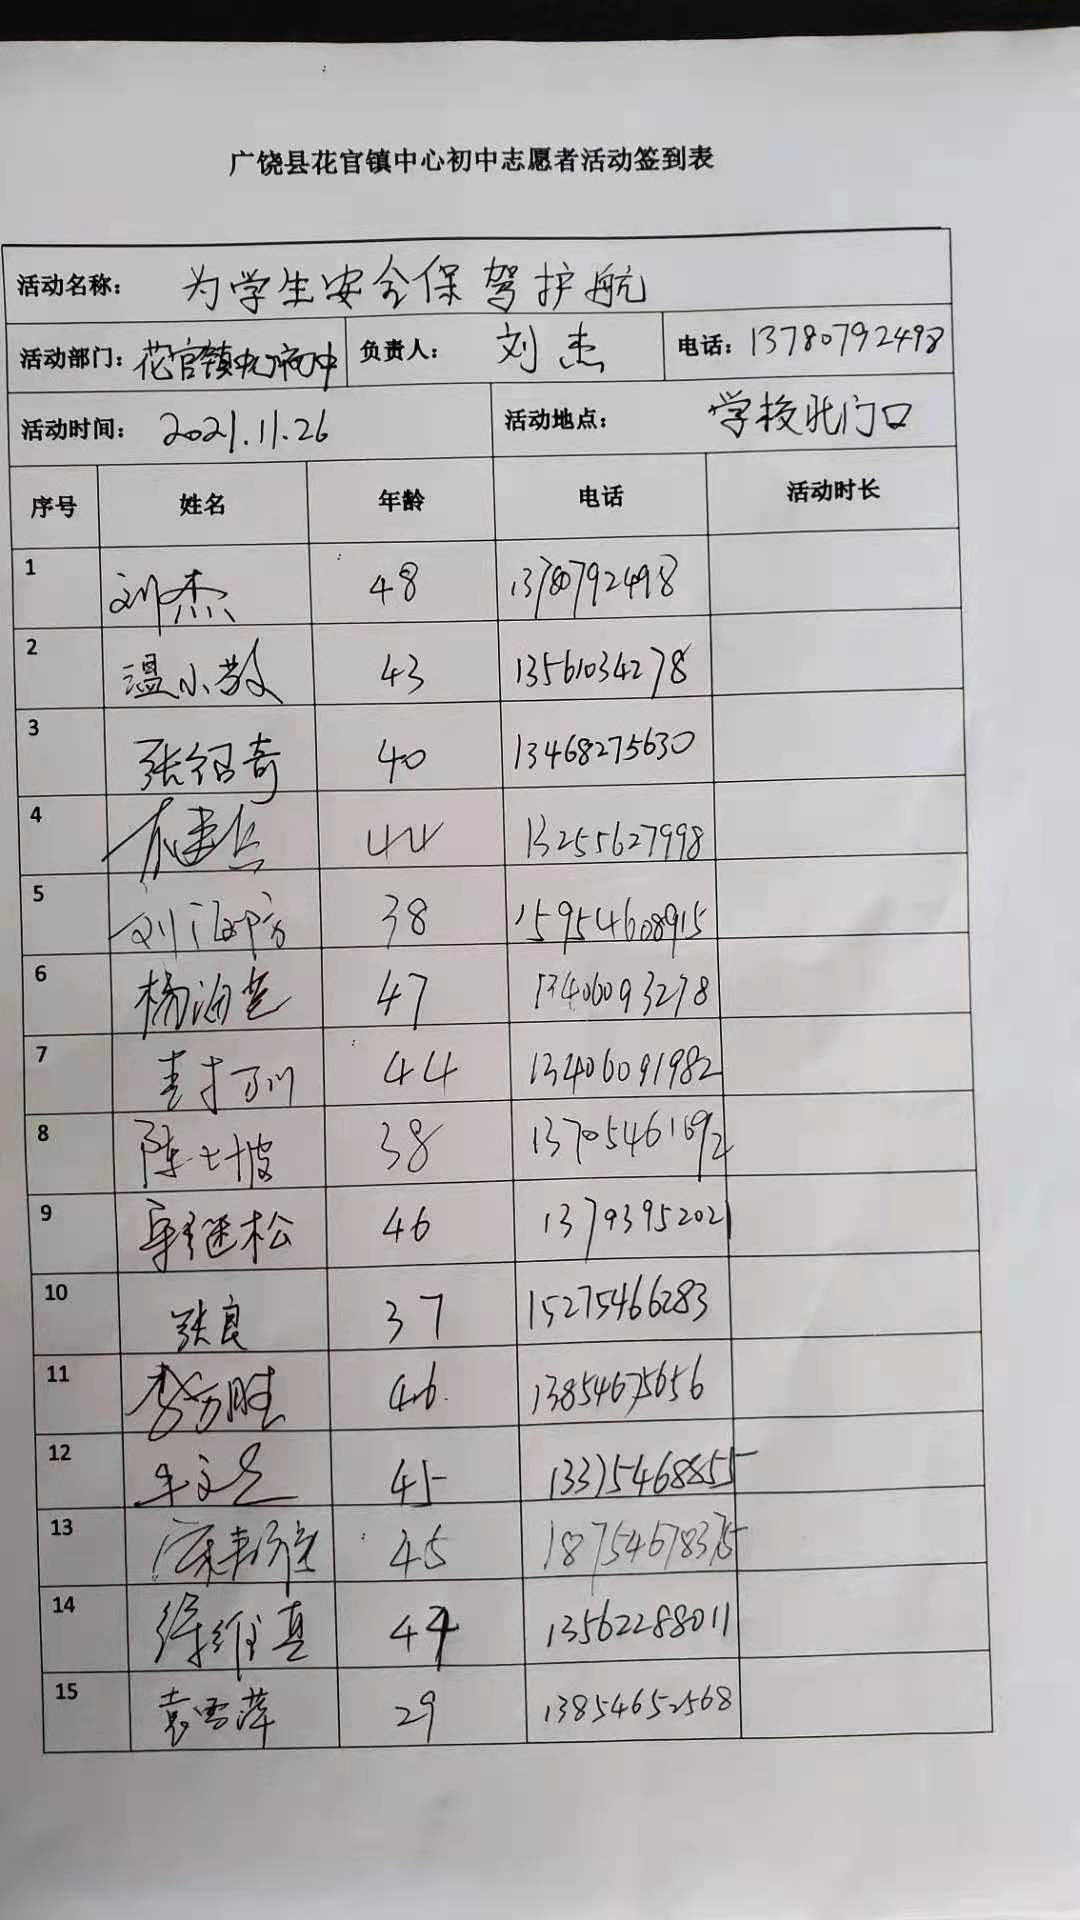 广饶县花官镇中心初中志愿者活动签到表
活动名称： 为学生安全保驾护航
活动部门：花官镇中心初中 负责人： 刘杰 电话：13780792498
活动时间： 2021.11.26 活动地点： 学校北门口
序号 姓名 年龄 电话 活动时长
1 刘杰 48 13780792498
2 温小敏 43 13561034278
3 张绍奇 40 13468275630
4 44 13255627998
5 38 15954608915
6 杨海芝 47 13406093278
7 44 13406091982
8 38 13705461692
9 46 13793952021
10 张良 37 15275466283
11 李万胜 46 13854675656
12 45 13375468855
13 45 18754678375
14 徐维真 44 13562288011
15 袁雪萍 29 13854652568